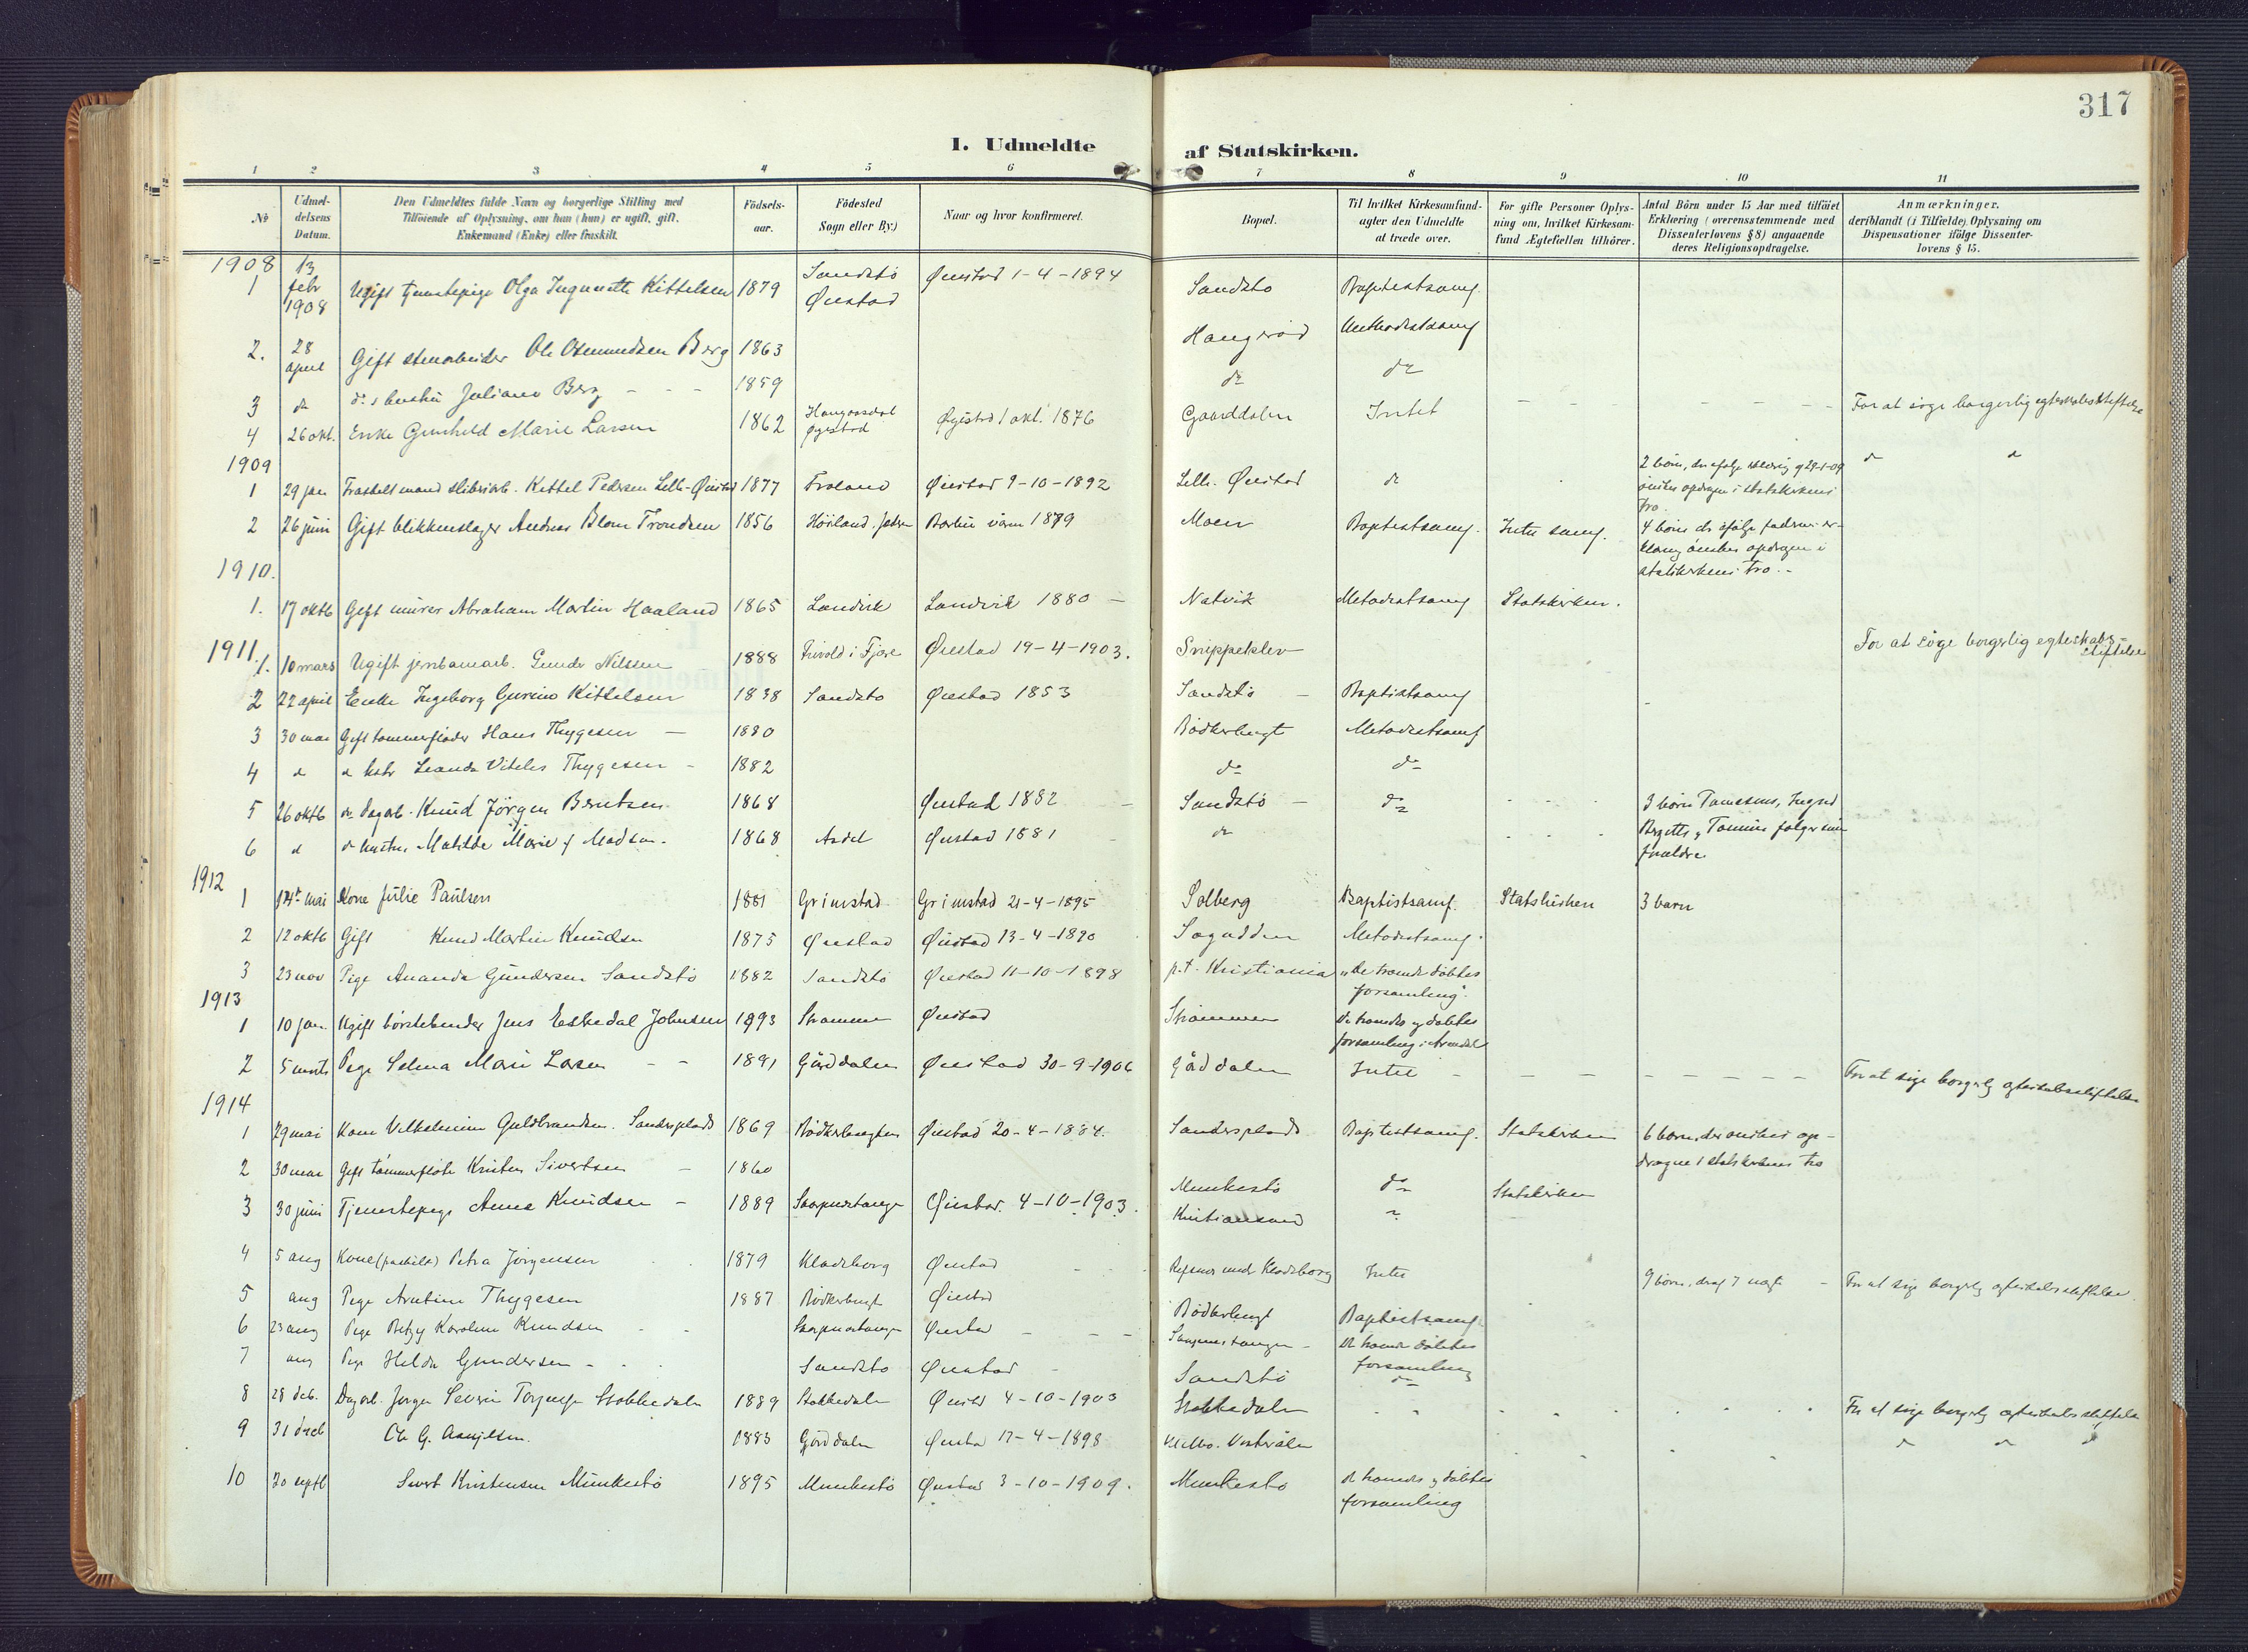 317
I. Udmeldte af Statskirken.
1 2 3 4 5 6 7 8 9 10 11
№
Udmel-
delsens
Datum.
Den Udmeldtes fulde Navn og borgerlige Stilling med
Tilföiende af Oplysning, om han (hun) er ugift, gift,
Enkemand (Enke) eller fraskilt.
Födsels-
aar.
Födested
Sogn eller By.)
Naar og hvor konfirmeret.
Bopæl.
Til hvilket Kirkesamfund
agter den Udmeldte
at træde over.
For gifte Personer Oplys-
ning om, hvilket Kirkesam-
fund Ægtefællen tilhörer.
Antal Börn under 15 Aar med tilföiet
Erklæring (overensstemmende med
Dissenterlovens § 8) angaaende
deres Religionsopdragelse.
Anmærkninger,
deriblandt (i Tilfælde) Oplysning om
Dispensationer ifölge Dissenter-
lovens § 15.
1908
1 13 febr 1908 Ugift tjenestepige Olga Ingunette Kittelsen 1879 Sandstö Öiestad Öiestad 1-4-1894 Sandstö Baptistsamf.
2. 28 april Gift stenarbeider Ole Osmundsen Berg 1863 Haugerød Methodistsamf
3 do do s hustru Juliane Berg - - - 1859 do do
4 26 okt. Enke Gunhild Marie Larsen 1862 Øyestad Øyestad 1 okt. 1876 Gaarddalen Intet - - - - - For at søge borgerlig egteskabsstiftelse
1909
1 29 jan Fraskilt mand sliberiarb. Kittel Pedersen Lille-Øiestad 1877 Froland Øiestad 9-10-1892 Lille Øiestad do 2 børn, der ifølge erklæring af 29-1-09 ønskes opdragn i statskirkens tro.
2 26 juni Gift blikkenslager Andreas Blom Trondsen 1856 Höiland, Jæderen 1879 Moen Baptistsamf. Intet samf. 4 børn der ifølge faderens er- klæring ønskes opdragen i statskirkens tro.
1910.
1. 17 oktb Gift murer Abraham Martin Haaland 1865 Landvik Landvik 1880 - Natvik Metodistsamf Statskirken.
1911
1. 10 mars Ugift jernbanearb. Gunder Nilssen 1888 Frivold i Fjære Øiestad 19-4-1903. Snippeklev For at søge borgerlig egteskabs- stiftelse
2 22 april Enke Ingeborg Gurine Kittelsen 1838 Sandstö Øiestad 1853 Sandstö - Baptistsamf
3 30 mai Gift tømmerfløder Hans Thygesen - 1880 Bødkerbugt Metodistsamf
4 do do hstr Leanda Thygesen - 1882 do do
5 26 oktb do dagarb. Knud Jörgen Berntsen 1868 Øiestad 1882 - Sandstö - do 3 børn Ingrid
6 do do hustru Matilde Marie f Madsen. 1868 Øiestad 1881 do Tomine følger sine forældre
1912
1 14de mai Kone Julie Paulsen 1881 Grimstad Grimstad 21-4-1895 Solberg Baptistsamf. Statskirken 3 barn
2 12 oktb Gift Knud Martin Knudsen 1875 Øiestad Øiestad 13-4-1890 Sagodden Metodistsamf.
3 23 nov Pige Amanda Gundersen Sandstö 1882 Sandstö Øiestad 11-10-1898 p.t. Kristiania „De troende døbtes forsamling".
1913
1 10 jan. Ugift børstebinder Jens Eskedal Johnsen 1893 Strømmen Øiestad Strømmen De troendes og døbtes forsamling i Arendal
2 5 marts Pige Selma Marie Larsen - - 1891 Gårddalen Øiestad 30-9-1906 Gårddalen Intet - - - - - For at søge borgerlig egteskabsstiftelse
1914
1 29 mai Kone Vilhelmine Guldbrandsen. Sandersplads 1869 Bødkerbugten Øiestad 20-4-1884. Sandersplads Baptistsamf. Statskirken 6 børn, der ønskes op- dragne i statskirkens tro
2 30 mai Gift tømmerfløter Kristen Sivertsen - 1860 Munkestö do Statskirken
3 30 juni Tjenestepige Anna Knudsen - 1889 Skarpnestangen Øiestad. 4-10-1903. Kristiansand
4 5 aug Kone (fraskilt) Petra Jørgensen 1879 Klodeborg Øiestad Klodeborg Intet 9 børn, deraf 7 For at søge borgerlig egteskabsstiftelse.
5 aug Pige Thygesen 1887 Bødkerbugt Øiestad Bødkerbugt Baptistsamf.
6 23 aug Pige Betzy Karoline Knudsen - - Skarpnestangen Øiestad - - - De troende døbtes forsamling
7 aug Pige Hilda Gundersen - Sandstö Øiestad Sandstö do
8 28 deb. Dagarb. Jørgen Severin Stokkedalen 1889 Stokkedalen Øiestad 4-10-1903 Stokkedalen For at søge borgerlig egteskabsstiftelse
9 31 deb Ole G. 1883 Gårddalen Øiestad 17-4-1898 do do do
10 20 septb Sivert Kristensen Munkestö 1895 Munkestö Øiestad 3-10-1909. Munkestö De troendes og døbtes forsamling